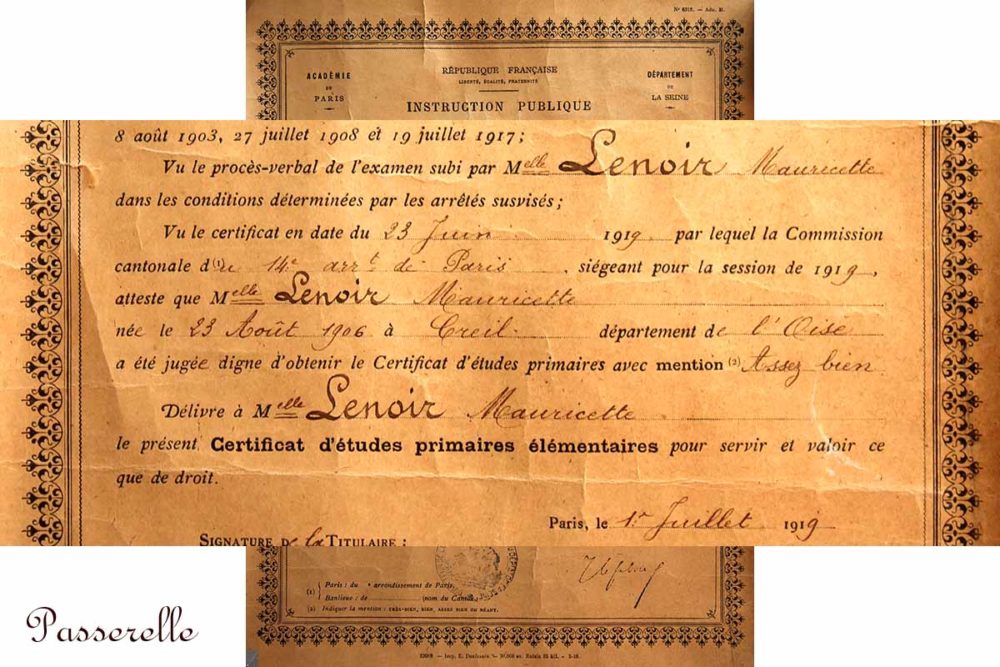 N° 6318. — Adm. M.
RÉPUBLIQUE FRANÇAISE
LIBERTÉ, ÉGALITÉ, FRATERNITÉ
ACADÉMIE
DE
PARIS
DÉPARTEMENT
DE
LA SEINE
INSTRUCTION PUBLIQUE
8 août 1903, 27 juillet 1908 et 19 juillet 1917;
Vu le procès-verbal de l'examen subi par Melle Lenoir Mauricette
dans les conditions déterminées par les arrêtés susvisés;
Vu le certificat en date du 23 Juin 1919 par lequel la Commission
cantonale d(1)u 14e arrt de Paris, siégeant pour la session de 1919,
atteste que Melle Lenoir Mauricette
née le 23 Août 1906 à Creil département de l'Oise
a été jugée digne d'obtenir le Certificat d'études primaires avec mention (2) Assez bien
Délivre à Melle Lenoir Mauricette
le présent Certificat d'études primaires élémentaires pour servir et valoir ce
que de droit.
Paris, le 1er Juillet 1919
SIGNATURE DE LA TITULAIRE :
(1) Paris : du e arrondissement de Paris.
Banlieue : de (nom du
(2) Indiquer la mention : TRÈS-BIEN, BIEN, ASSEZ BIEN OU NÉANT.
Passerelle